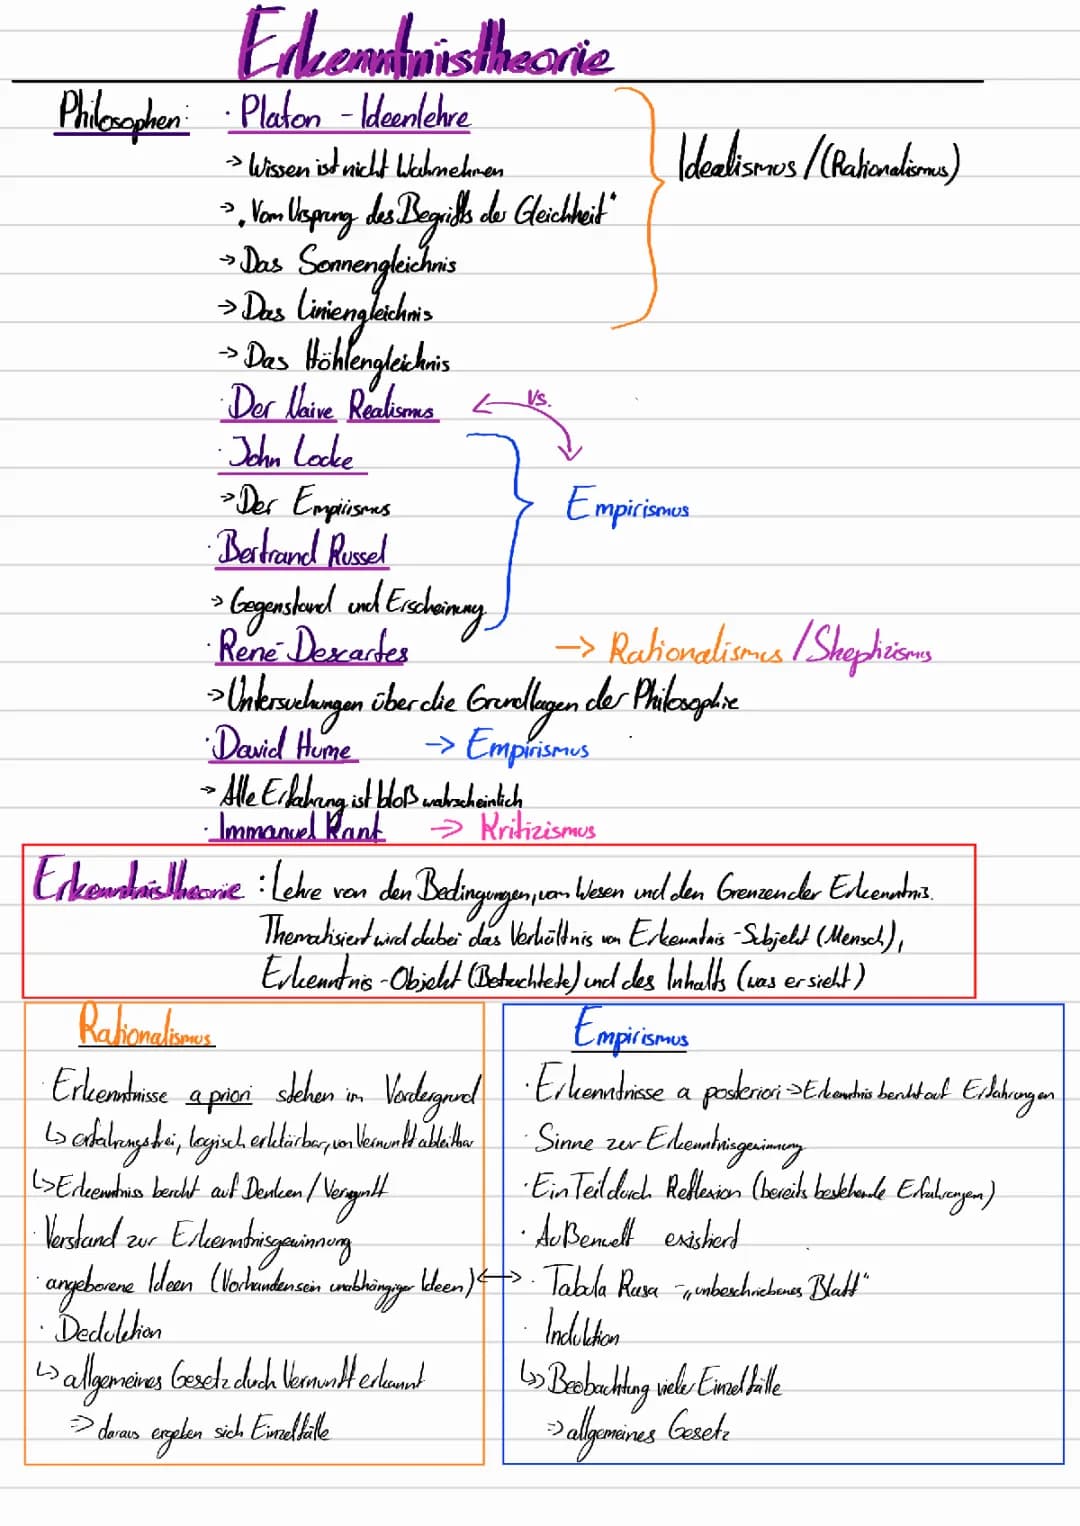 Erkenntnistheorie
Philosophen: · Platon - Ideenlehre
Idealismus / (Rationalismus)
-> Wissen ist nicht Wahrnehmen
-> „Vom Ursprung des Begriffs der Gleichheit"
-> Das Sonnengleichnis
-> Das Liniengleichnis
-> Das Höhlengleichnis
· Der Naive Realismus
vs.
· John Locke
-> Der Empirismus
Empirismus
· Bertrand Russel
-> Gegenstand und Erscheinung
· René Descartes -> Rationalismus / Skeptizismus
-> Untersuchungen über die Grundlagen der Philosophie
· David Hume -> Empirismus
-> Alle Erfahrung ist bloß wahrscheinlich
· Immanuel Kant -> Kritizismus
Erkenntnistheorie : Lehre von den Bedingungen, vom Wesen und den Grenzen der Erkenntnis.
Thematisiert wird dabei das Verhältnis von Erkenntnis-Subjekt (Mensch),
Erkenntnis-Objekt (Betrachtete) und des Inhalts (was er sieht)
Rationalismus
· Erkenntnisse a priori stehen im Vordergrund
↳ erfahrungsfrei, logisch erklärbar, von Vernunft ableitbar
↳ Erkenntniss beruht auf Denken / Vernunft
· Verstand zur Erkenntnisgewinnung
· angeborene Ideen (Vorhandensein unabhängiger Ideen) <->
· Deduktion
↳ allgemeines Gesetz durch Vernunft erkannt
=> daraus ergeben sich Einzelfälle
Empirismus
· Erkenntnisse a posteriori -> Erkenntnis beruht auf Erfahrungen
· Sinne zur Erkenntnisgewinnung
· Ein Teil durch Reflexion (bereits bestehende Erfahrungen)
· Außenwelt existiert
· Tabula Rasa - „unbeschriebenes Blatt"
· Induktion
↳ Beobachtung vieler Einzelfälle
=> allgemeines Gesetz